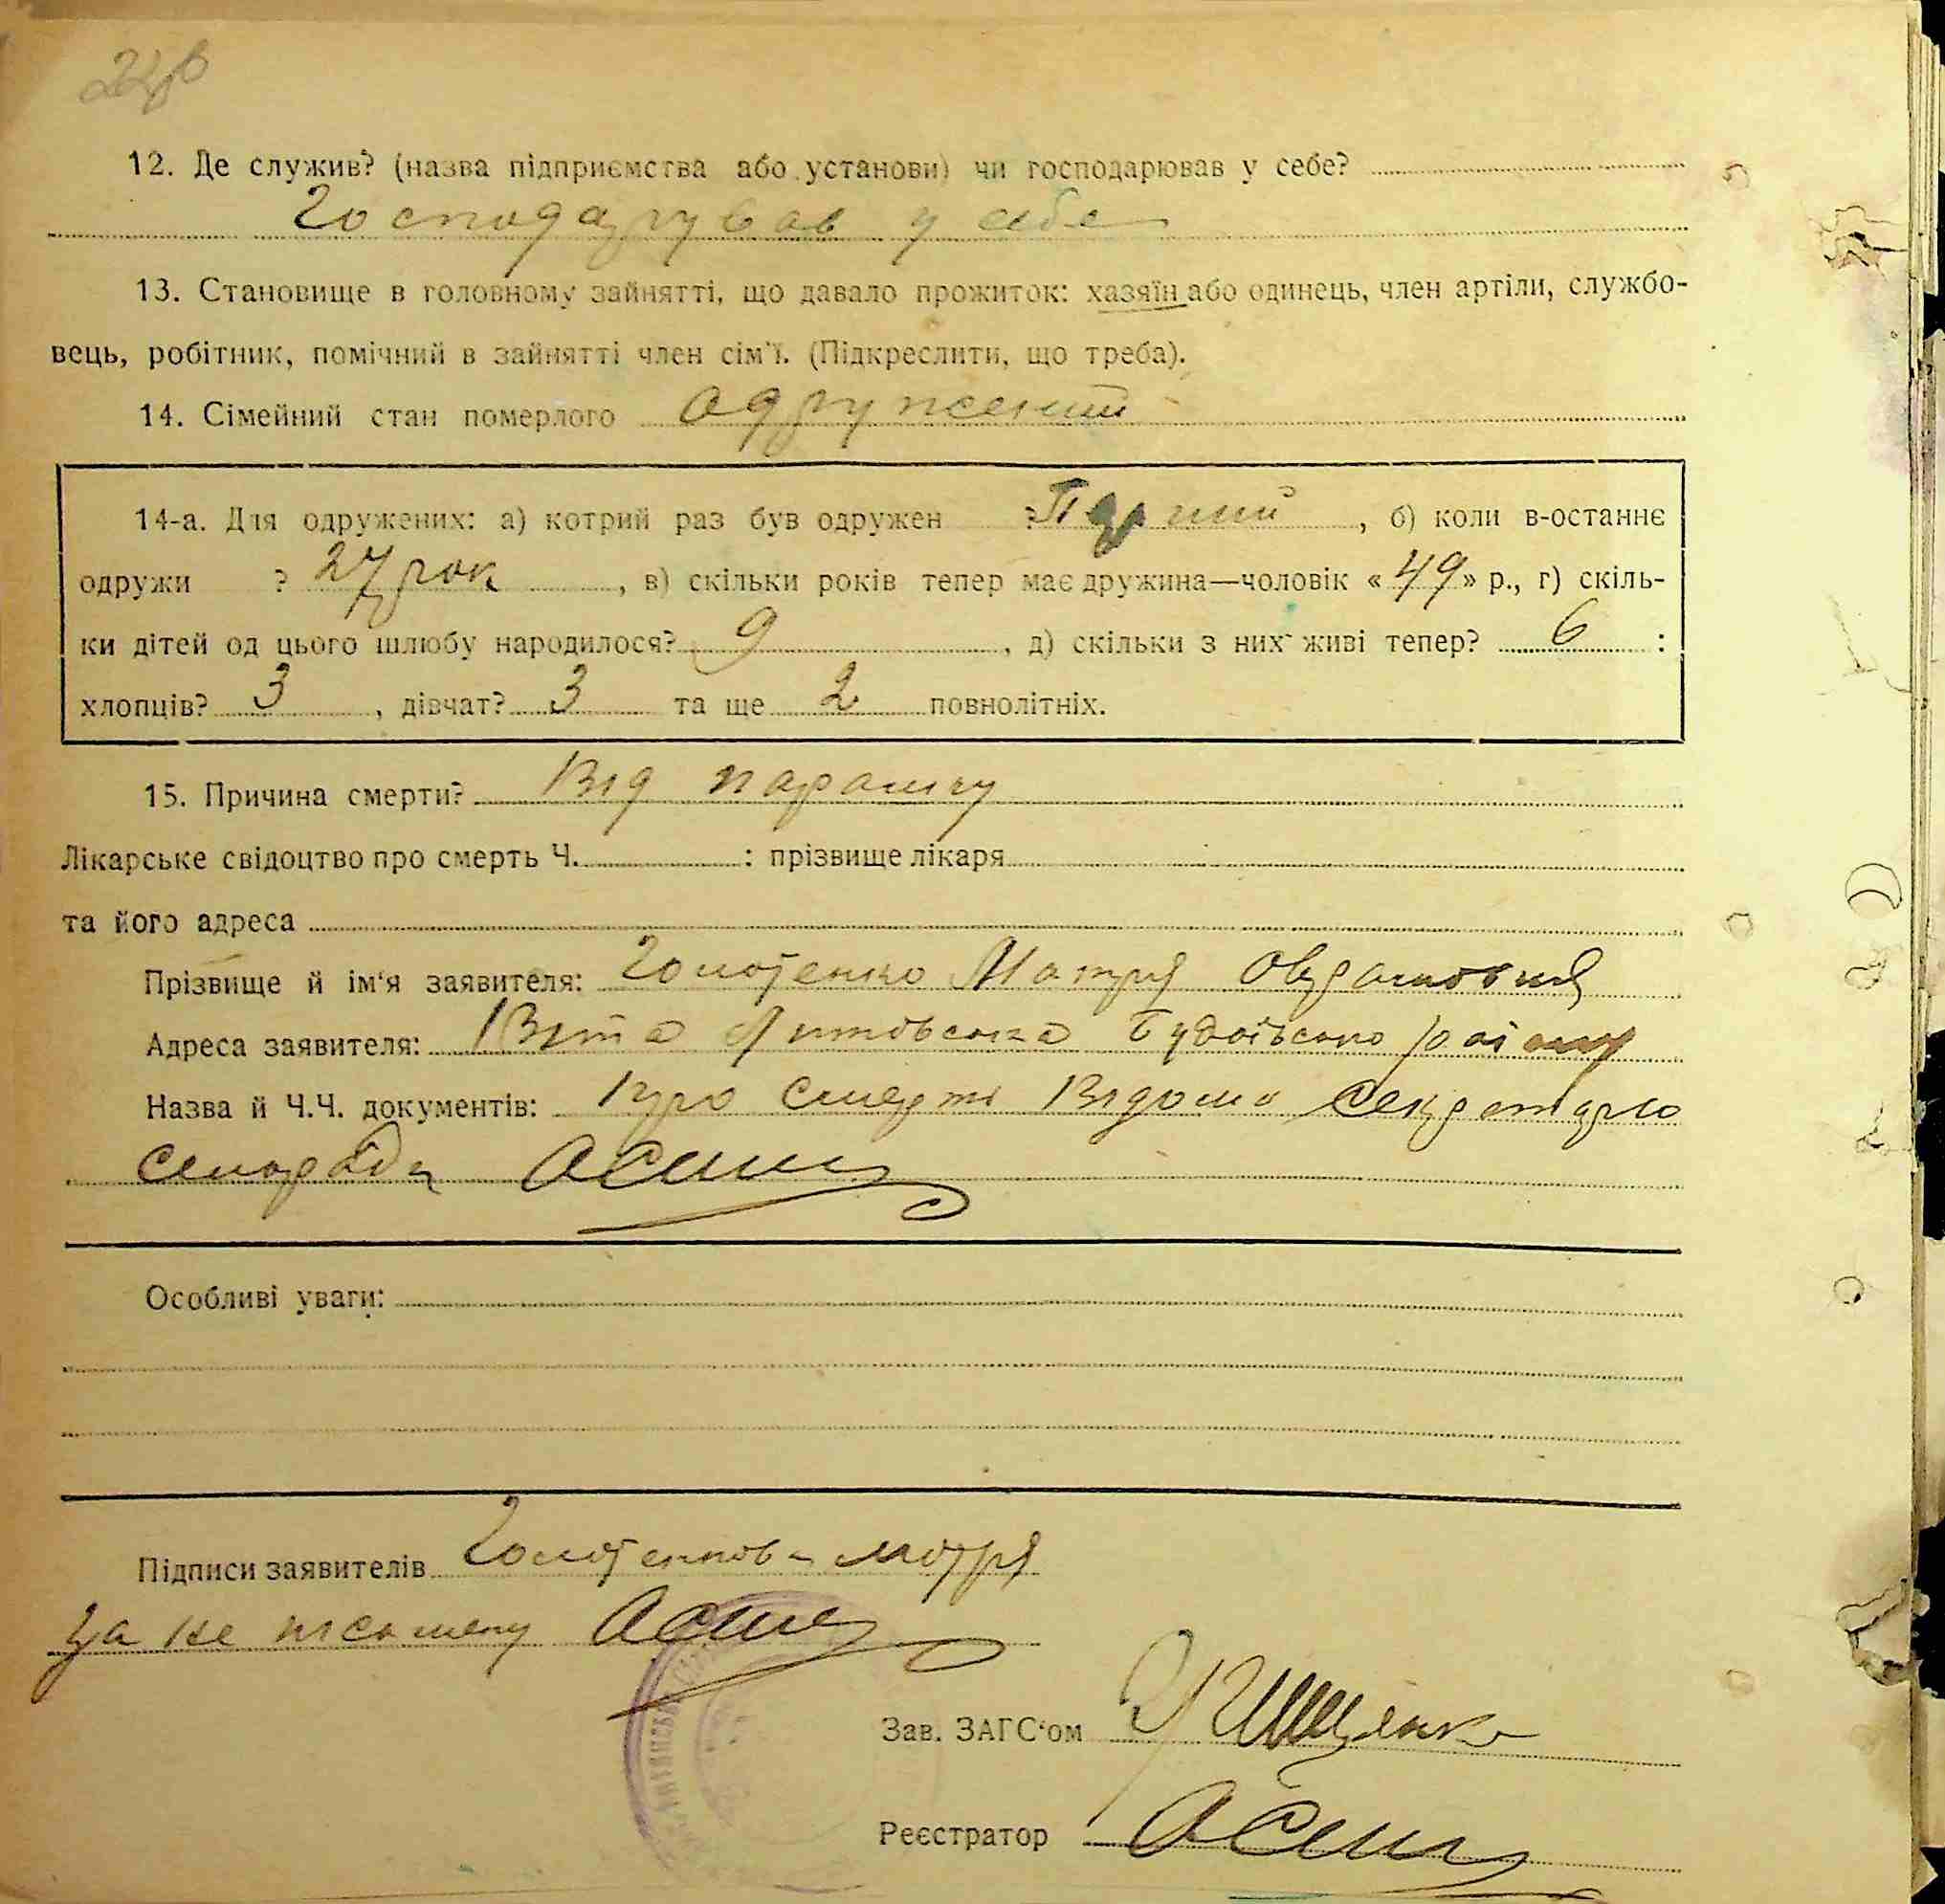 12. Де служив? (назва підприємства або установи) чи господарював у себе?
Господарував у себе
13. Становище в головному зайнятті, що давало прожиток: хазяїн або одинець, член артіли, службо-
вець, робітник, помічний в зайнятті член сім'ї. (Підкреслити, що треба).
14. Сімейний стан померлого одружений
14-а. Для одружених: а) котрий раз був одружен ? Перший, б) коли в-останнє
одружи ? 27 рок, в) скільки років тепер має дружина—чоловік «49» р., г) скіль-
ки дітей од цього шлюбу народилося? 9, д) скільки з них живі тепер? 6 :
хлопців? 3, дівчат? 3 та ще 2 повнолітніх.
15. Причина смерти? Від паралічу
Лікарське свідоцтво про смерть Ч. : прізвище лікаря
та його адреса
Прізвище й ім'я заявителя: Мотря
Адреса заявителя: Віта Литовська Будаївського району
Назва й Ч.Ч. документів: Про смерть відомо секретарю
сельради
Особливі уваги:
Підписи заявителів Мотря
за не письмену
Зав. ЗАГС'ом
Реєстратор